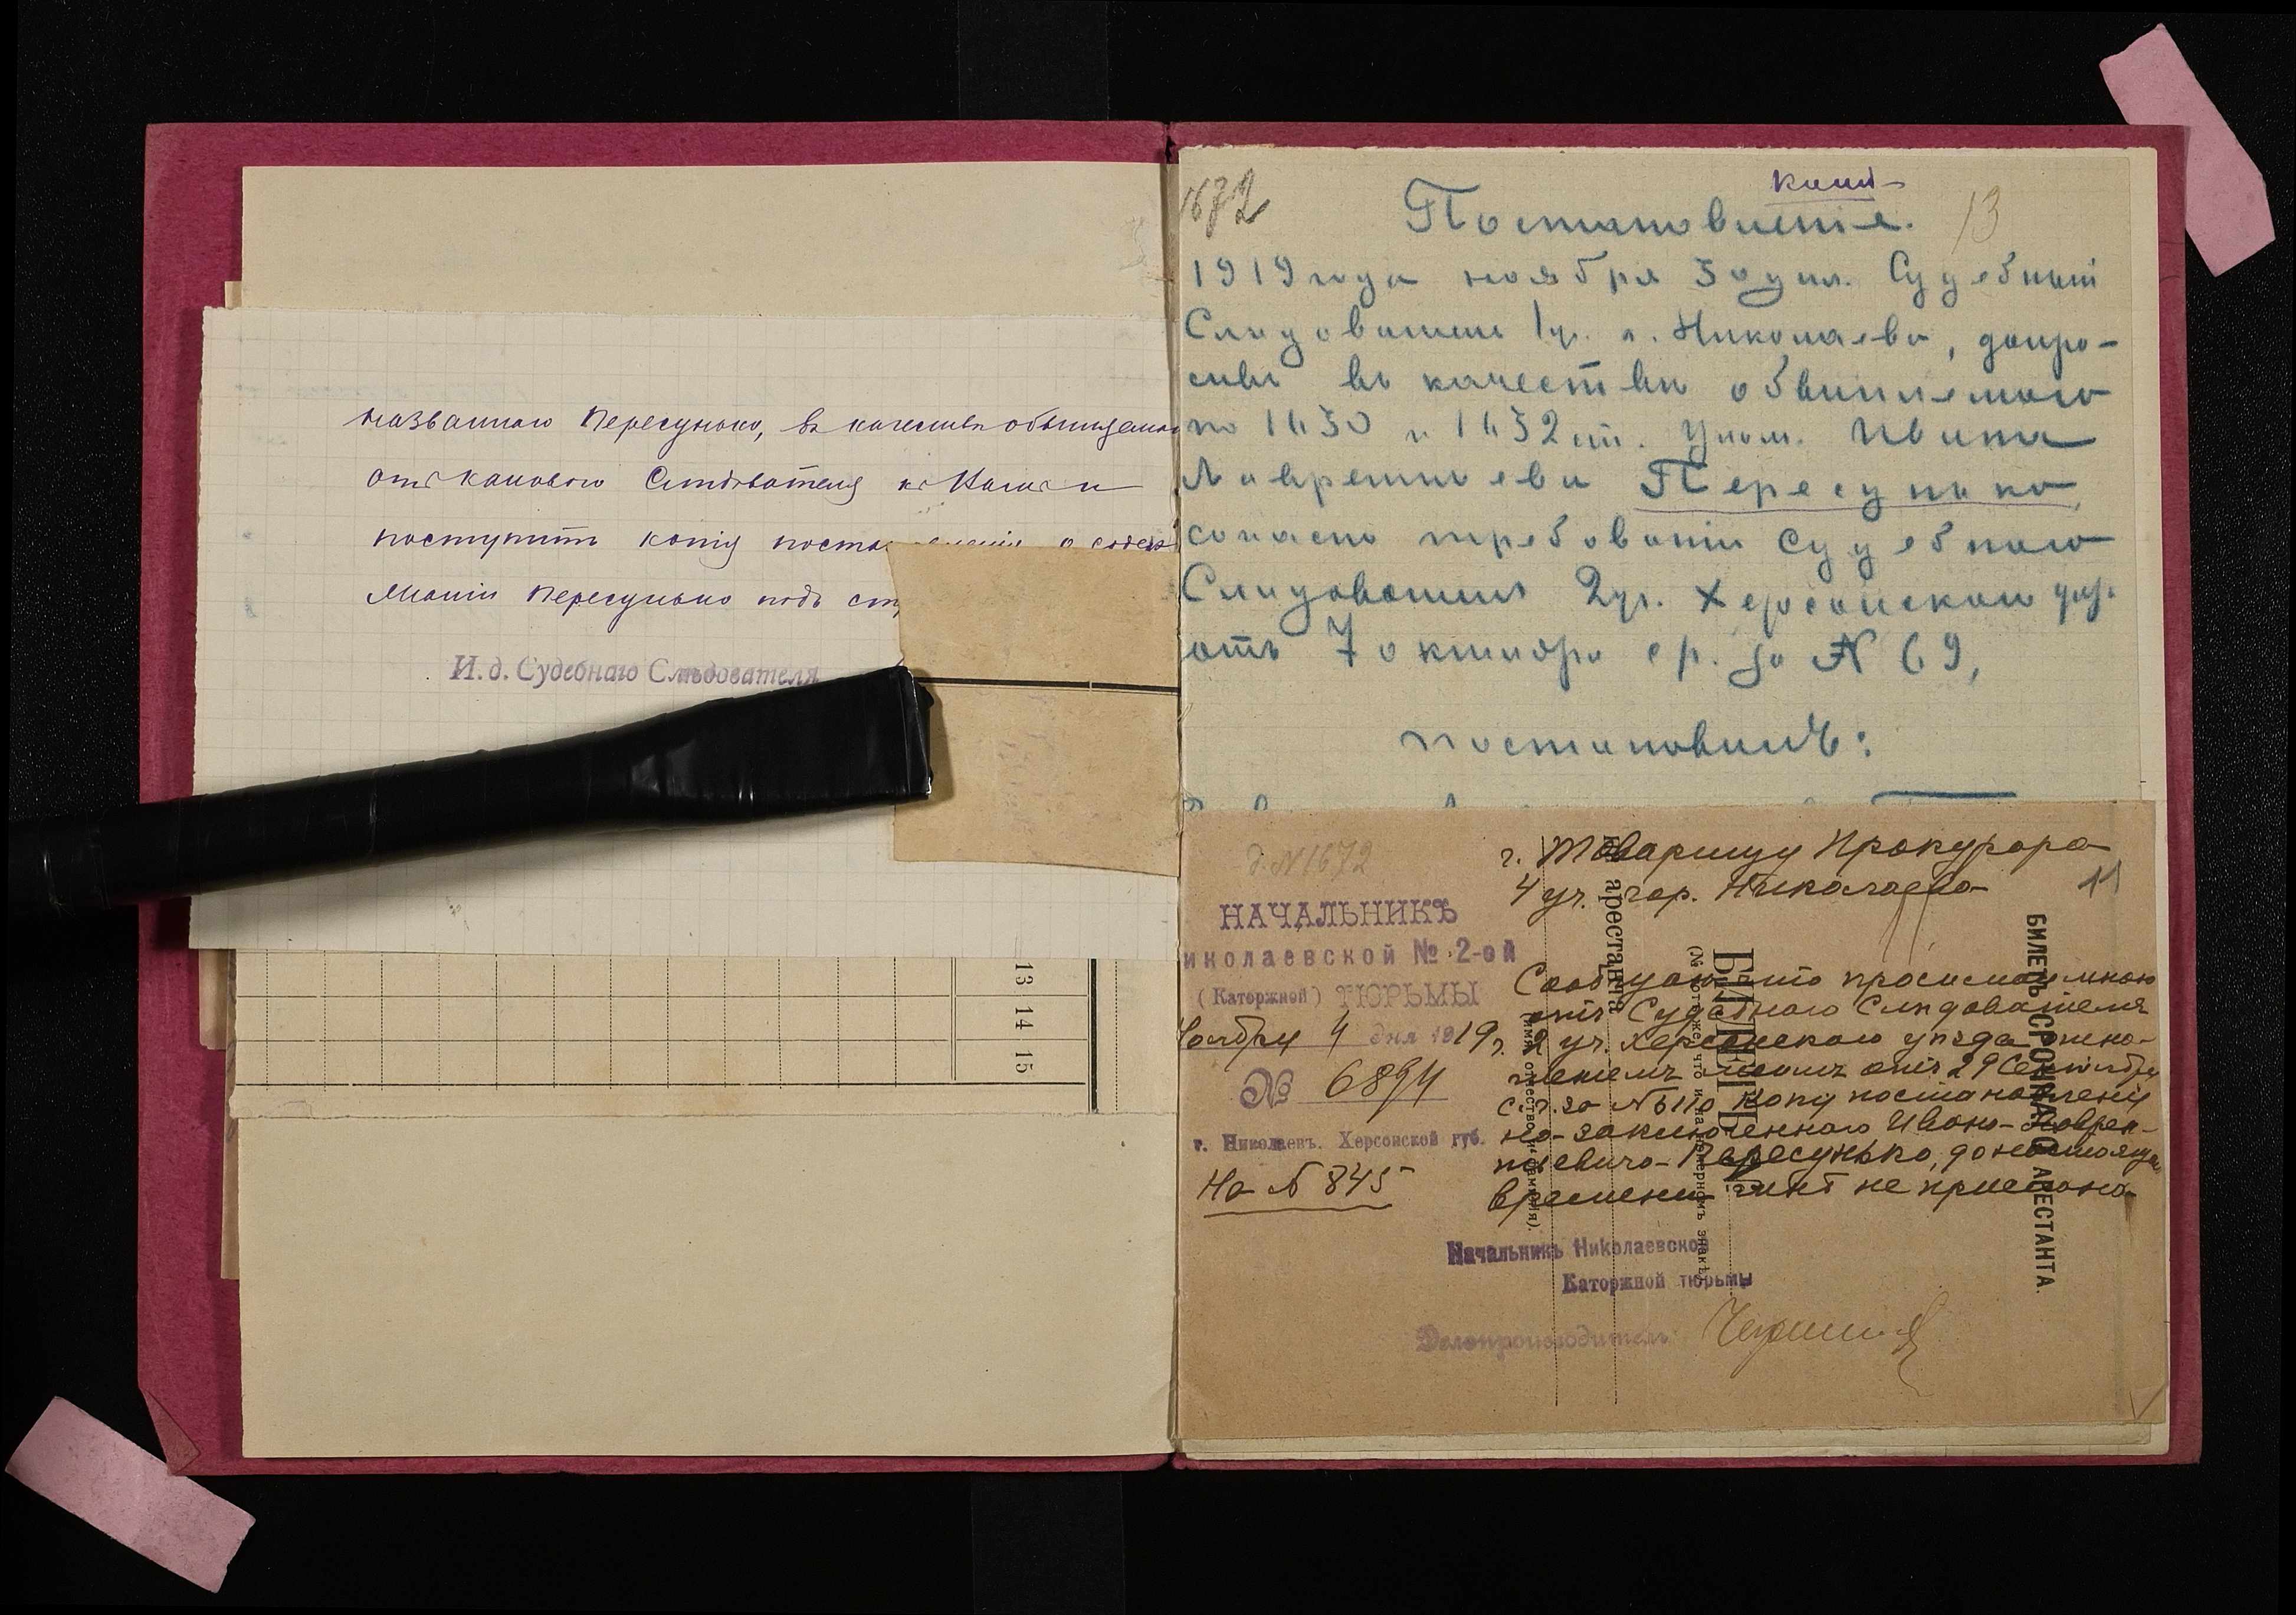 названнаго Пересунько, въ качествѣ обвиняемаго
отъ каковаго Слѣдователя и
поступитъ копія поста  о содер
жаніи Пересунько подъ ст
И. д. Судебнаго Слѣдователя
13 14 15
1672
копія
13
Постановленіе.
1919 года ноября 30 дня. Судебный
Слѣдователь 1 уч. г. Николаева, допро-
сивъ въ качествѣ обвиняемаго
по 1630 и 1632 ст. Улож. Ивана
Лаврентьева Пересунько,
согласно требованія Судебнаго
Слѣдователя 2 уч. Херсонскаго уѣз.
отъ 7 октября с.г. за № 69,
постановилъ:
д. № 1672
НАЧАЛЬНИКЪ
иколаевской № 2-ой
(Каторжной) ТЮРЬМЫ
Ноября 4 дня 1919 г.
№ 6894
г. Николаевъ. Херсонской губ.
На № 845
г. Товарищу Прокурора
4 уч. гор. Николаева
11
Сообщаю, что просимая мною
отъ Судебнаго Слѣдователя
2 уч. Херсонскаго уѣзда отно-
шеніемъ моимъ отъ 29 Сентября
с.г. за № 5110 копія постановленія
на заключеннаго Ивана Лаврен-
тьевича Пересунько, до настояща
времени имъ не прислана
Начальникъ Николаевской
Каторжной тюрьмы
Делопроизводитель
БИЛЕТЪ СРОЧНАГО АРЕСТАНТА.
БИЛЕТЪ
арестанта